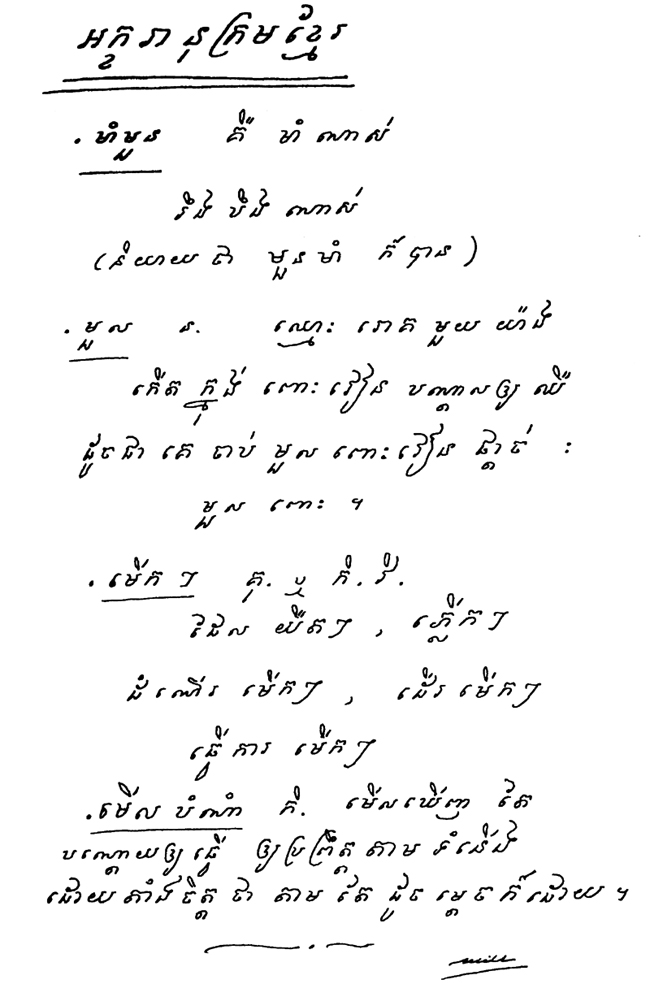 អក្ខរានុក្រមខ្មែរ
. មាំមួន គឺ មាំ ណាស់
រឹង ប៉ឹង ណាស់
(និយាយ ថា មួនមាំ ក៏ បាន)
. មួល ន. ឈ្មោះ រោគ មួយ យ៉ាង
កើត ក្នុង ពោះវៀន បណ្ដាលឲ្យ ឈឺ
ដូចជា គេ ចាប់ មួល ពោះវៀន ផ្ដាច់ :
មួល ពោះ ។
. មើក ៗ គុ. ឬ កិ. វិ.
ដែល យឺតៗ , ភ្លើកៗ
ដំណើរ មើកៗ , ដើរ មើកៗ
ធ្វើការ មើកៗ
. មើល បំណាំ កិ. មើលឃើញ តែ
បណ្ដោយឲ្យ ធ្វើ ឲ្យប្រព្រឹត្ត តាម ទំនើង
ដោយ តាំងចិត្ត ថា តាម តែ ដូច ម្ដេច ក៏ដោយ ។